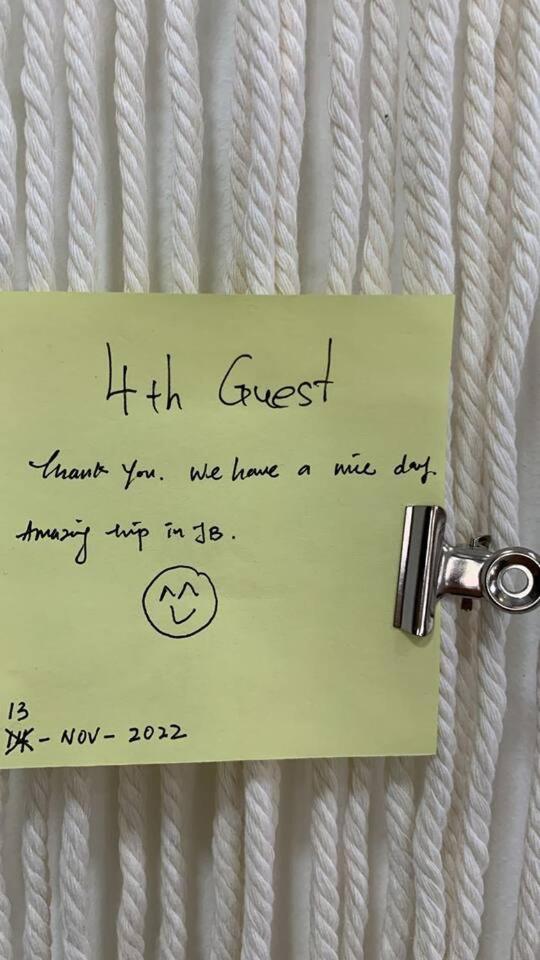 4th Guest
Thank You. We have a nice day.
Amazing trip in JB.
13
- NOV - 2022